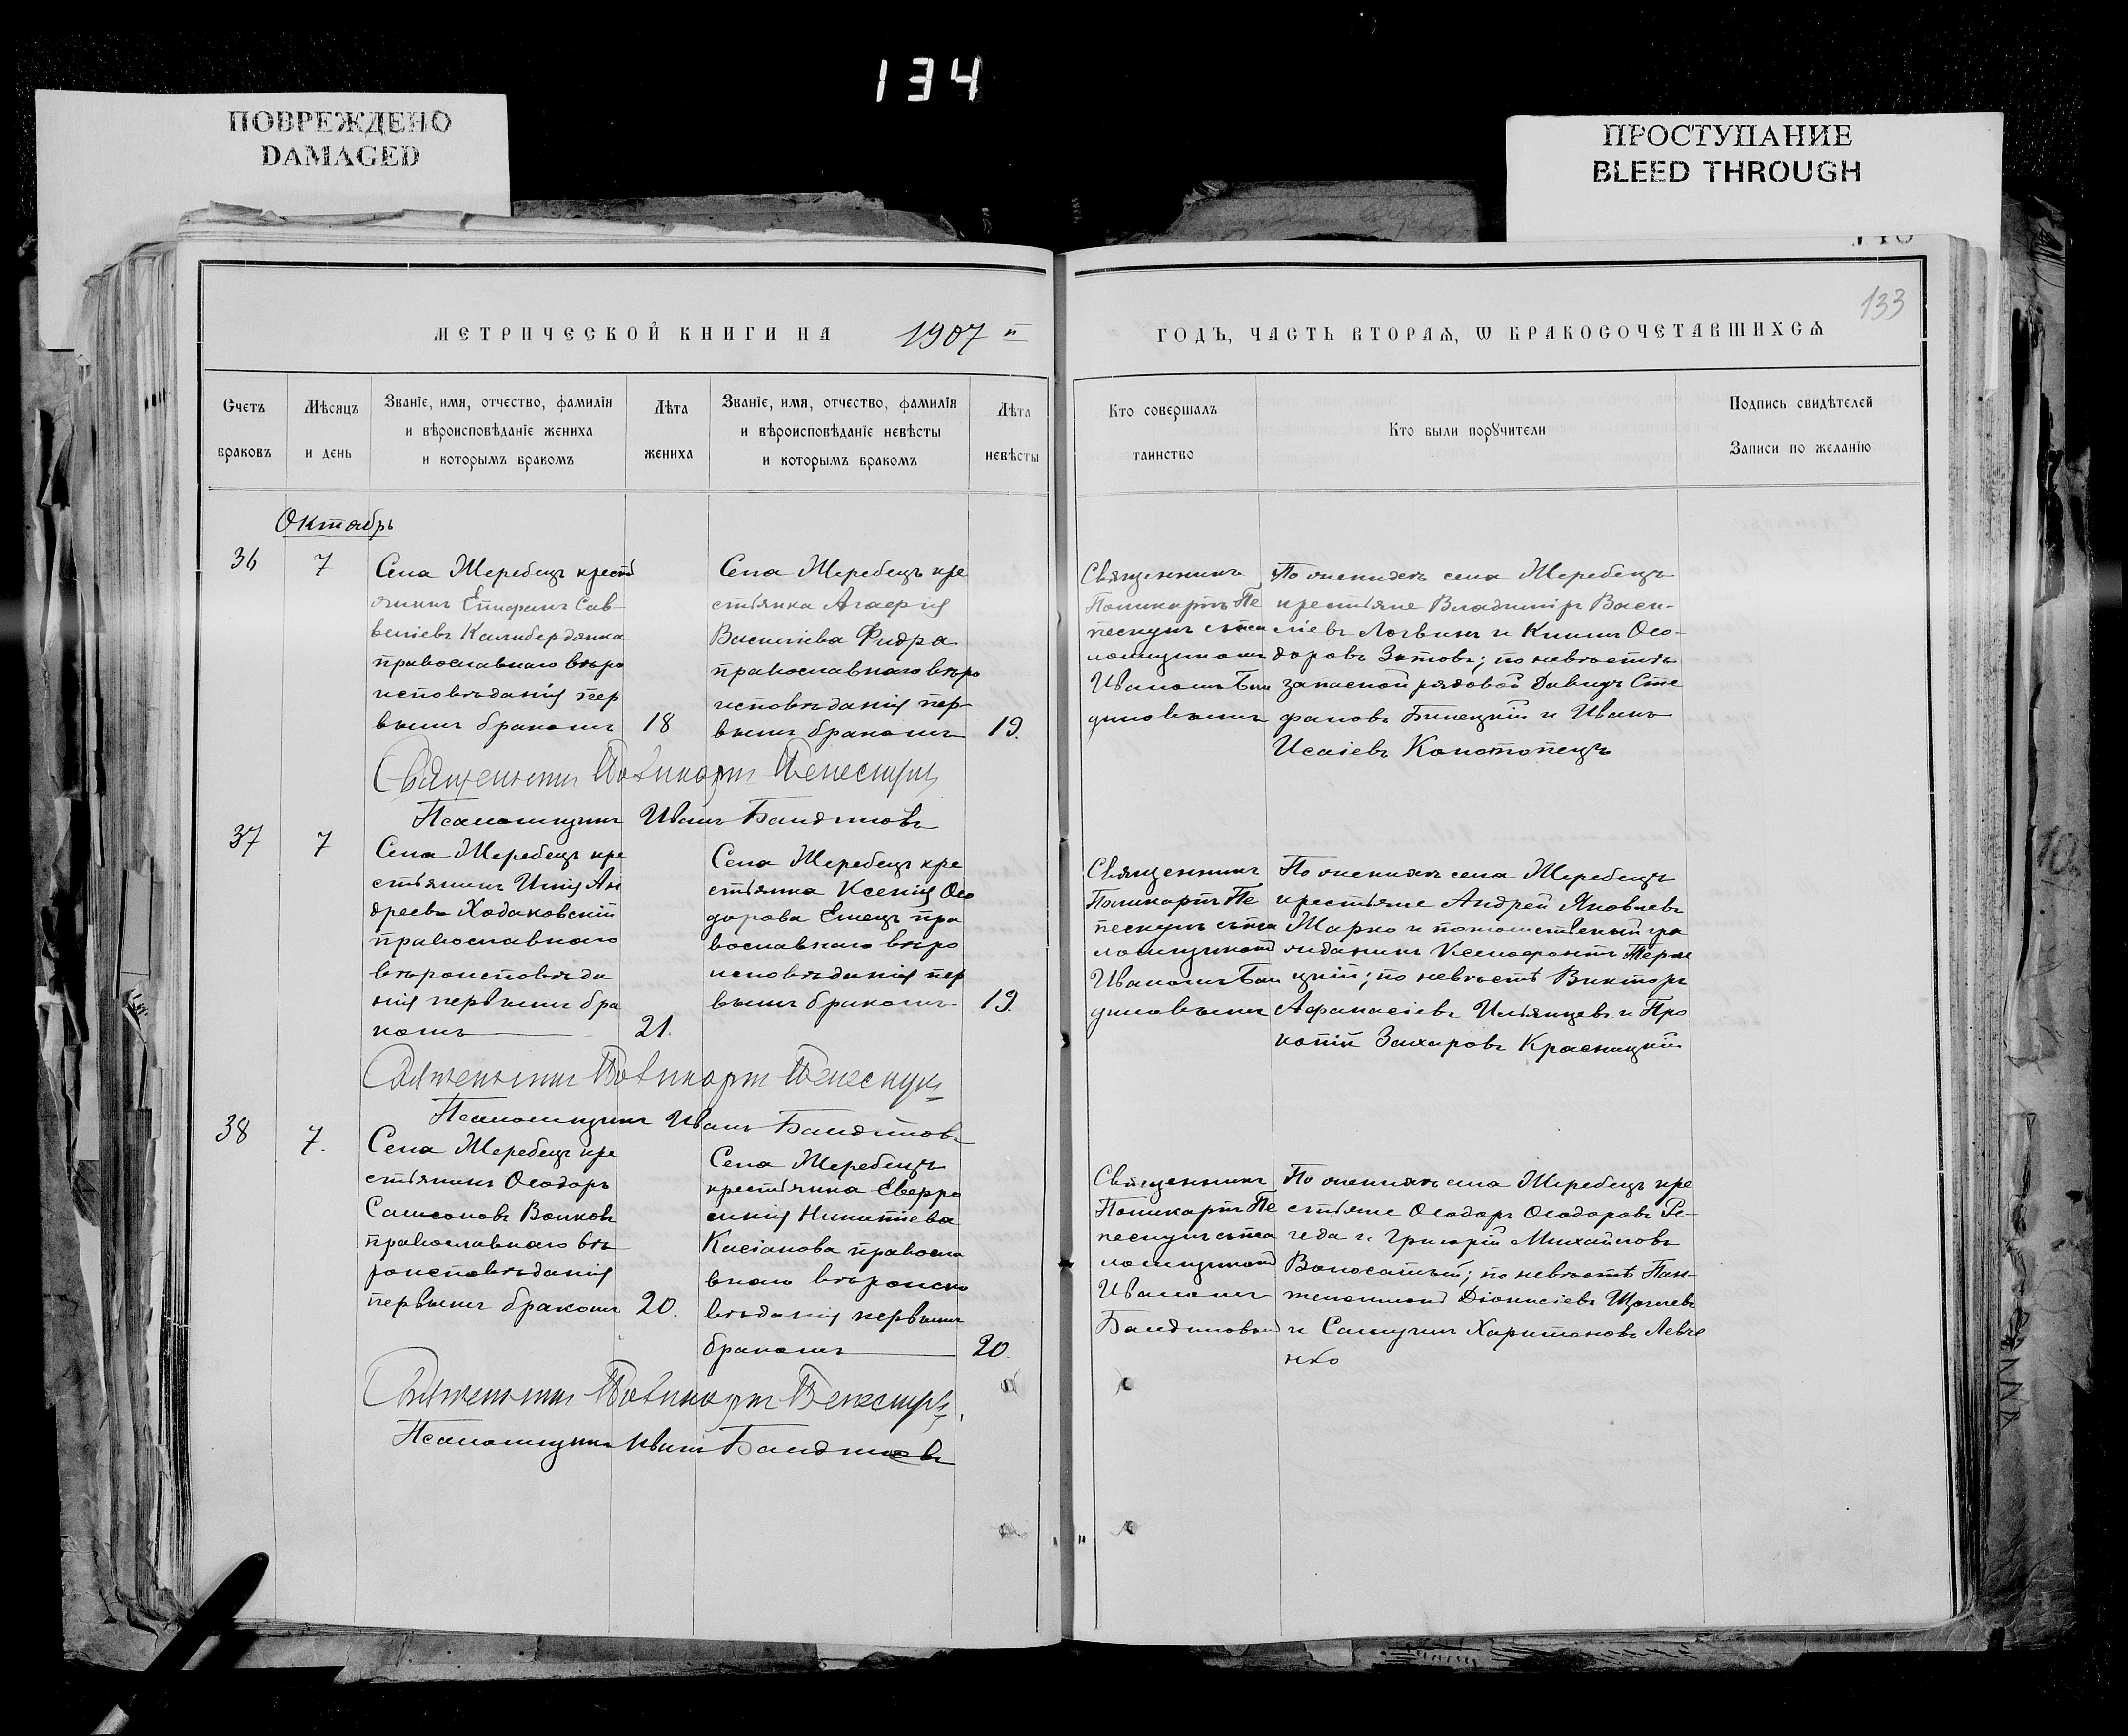 134
ПОВРЕЖДЕНО
DAMAGED
ПРОСТУПАНИЕ
BLEED THROUGH
133
МЕТРИЧЕСКОЙ КНИГИ НА 1907 й
ГОДЪ, ЧАСТЬ ВТОРАѦ, Ѡ БРАКОСОЧЕТАВШИХСѦ
Счетъ
браковъ
Мѣсяцъ
и день
Званіе, имя, отчество, фамилія
и вѣроисповѣданіе жениха
и которымъ бракомъ
Лѣта
жениха
Званіе, имя, отчество, фамилія
и вѣроисповѣданіе невѣсты
и которымъ бракомъ
Лѣта
невѣсты
Кто совершалъ
таинство
Кто были порꙋчители
Подпись свидѣтелей
Записи по желанію
Октябрь
36
7
Села Жеребецъ кресть
янинъ Епифанъ Сав-
веліевъ Калиберданка
православнаго вѣро
исповѣданія пер
вымъ бракомъ
18
Села Жеребецъ кре
стьянка Агафія
Василіева Фидра
православнаго вѣро
исповѣданія пер-
вымъ бракомъ
19.
Священникъ
Поликарпъ Пе
лескулъ съ пса
ломщикомъ
Иваномъ Бан
диловымъ
По женихѣ села Жеребецъ
крестьяне Владиміръ Васи-
ліевъ Логвинъ и Климъ Ѳео-
доровъ Зотовъ; по невѣстѣ
запасной рядовой Давидъ Сте
фановъ Билецкій и Иванъ
Исаіевъ Конотопецъ
Священникъ Поликарпъ Пелескулъ
Псаломщикъ Иванъ Бандиловъ
37
7
Села Жеребецъ кре
стьянинъ Илія Ан
дреевъ Ходаковскій
православнаго
вѣроисповѣда
нія первымъ бра
комъ
21.
Села Жеребецъ кре
стьянка Ксенія Ѳео
дорова Емецъ пра
вославнаго вѣро
исповѣданія пер
вымъ бракомъ
19.
Священникъ
Поликарпъ Пе
лескулъ съ пса
ломщикомъ
Иваномъ Бан
диловымъ
По женихѣ села Жеребецъ
крестьяне Андрей Яковлевъ
Марко и потомственный гра
жданинъ Ксенофонтъ Терле
цкій; по невѣстѣ Викторъ
Афанасіевъ Ильяшевъ и Про
копій Захаровъ Красницкій
Священникъ Поликарпъ Пелескулъ
Псаломщикъ Иванъ Бандиловъ
38
7.
Села Жеребецъ кре
стьянинъ Ѳеодоръ
Самсоновъ Волковъ
православнаго вѣ
роисповѣданія
первымъ бракомъ
20.
Села Жеребецъ
крестьянка Евфро
синія Никитіева
Касіанова правосла
внаго вѣроиспо
вѣданія первымъ
бракомъ
20.
Священникъ
Поликарпъ Пе
лескулъ съ пса
ломщикомъ
Иваномъ
Бандиловым
По женихѣ села Жеребецъ кре
стьяне Ѳеодоръ Ѳеодоровъ Ре-
геда и Григорій Михайловъ
Волосатый; по невѣстѣ Пан-
телеимонъ Діонисіевъ
и Самуилъ Харитоновъ Левче
нко
Священникъ Поликарпъ Пелескулъ
Псаломщикъ Иванъ Бандиловъ